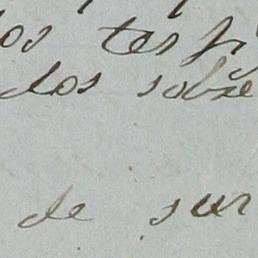 los tes
dos sobre
de sur